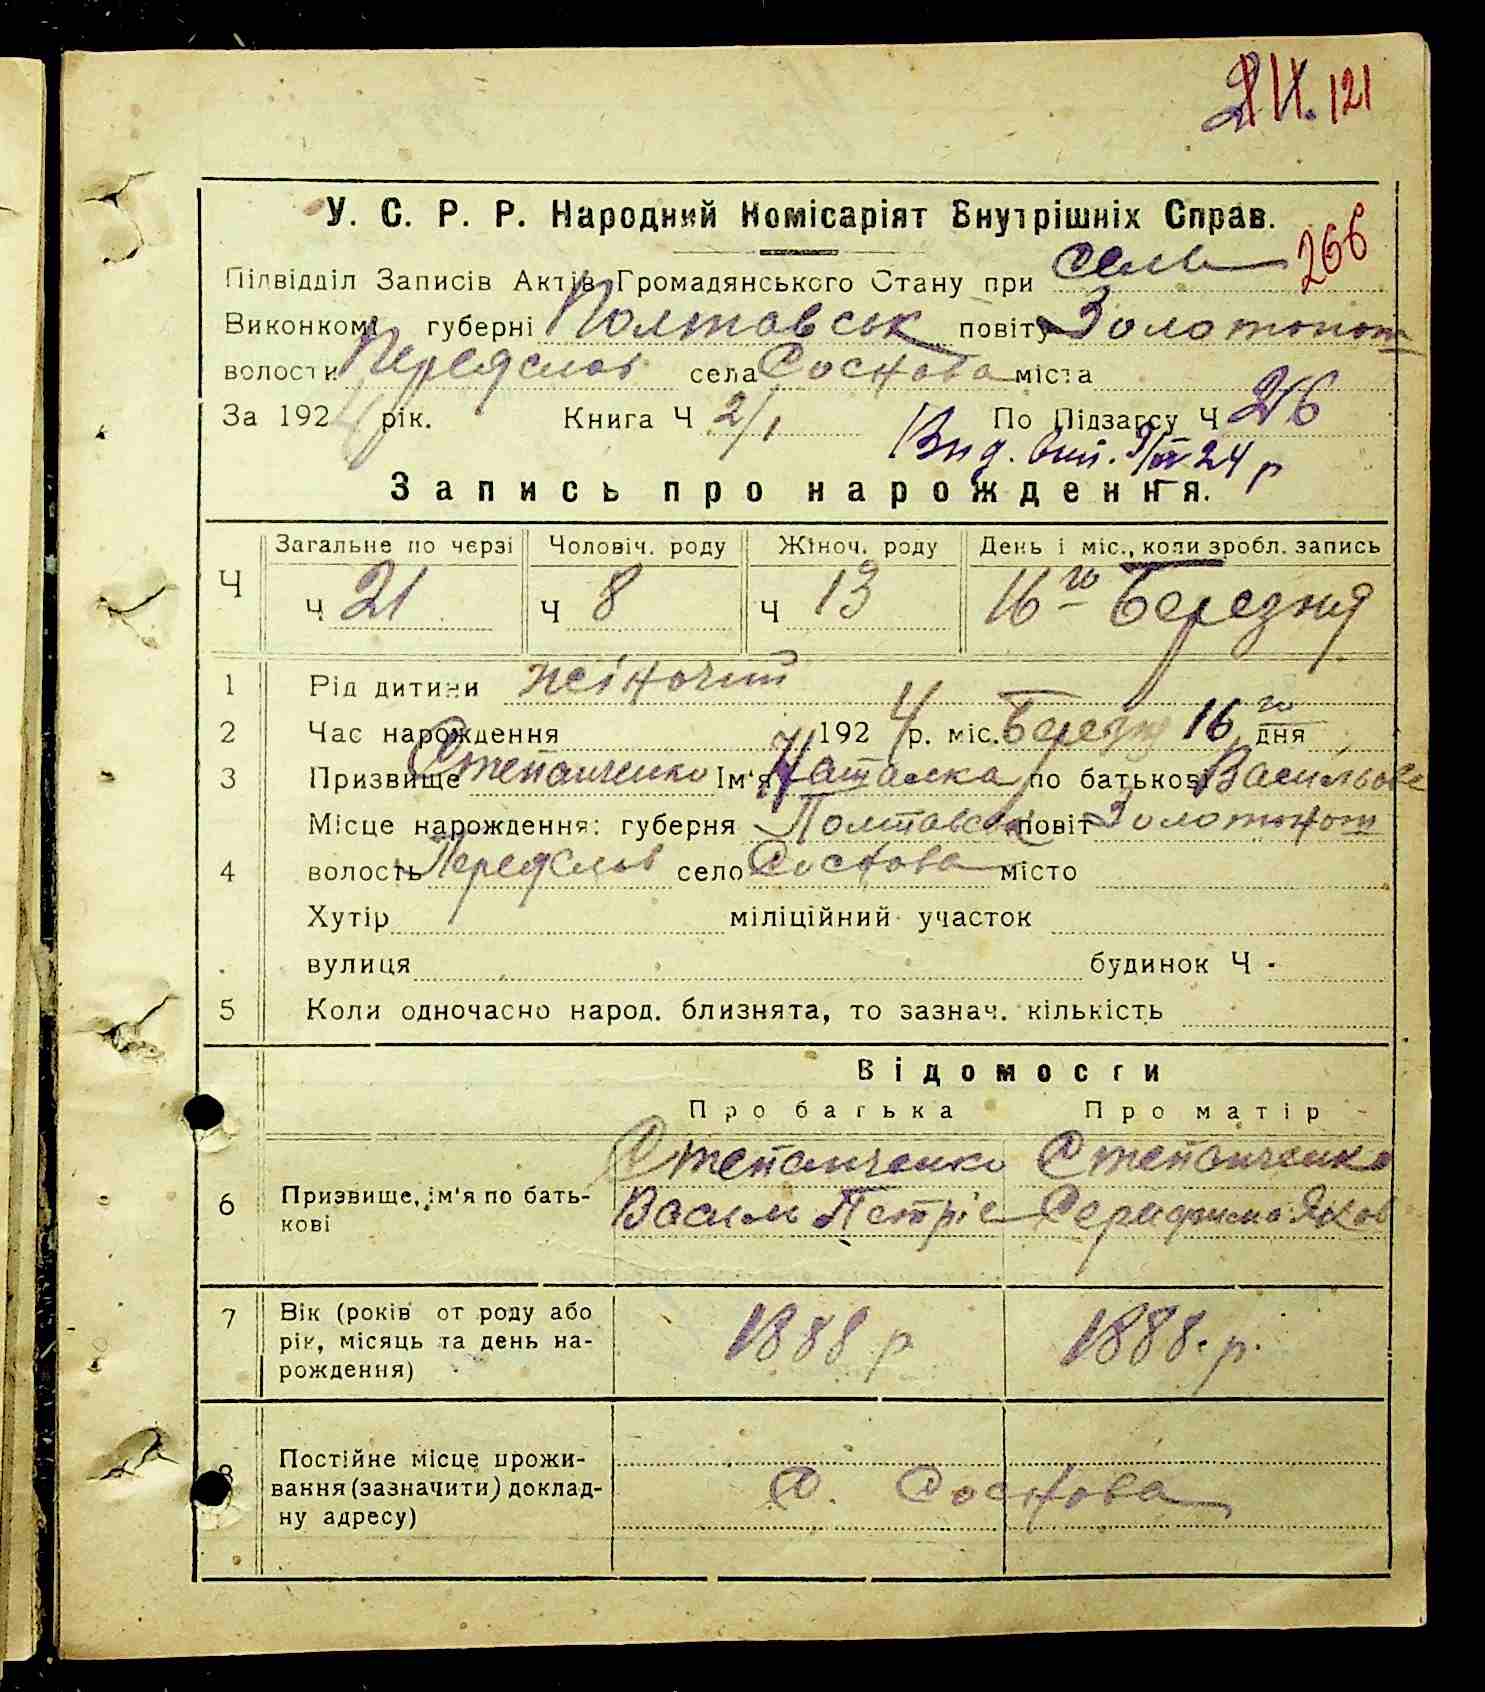 121
У. С. Р. Р. Народний Комісаріят Внутрішніх Справ.
266
Підвідділ Записів Актів Громадянського Стану при Сель
Виконкомі губерні Полтавськ повіту Золотонош
волости Переяслов села Соснова міста
За 1924 рік. Книга Ч 2/1 По Підзагсу Ч 26
Вид. вип. 24 р
Запись про нарождення.
Ч Загальне по черзі Чоловіч. роду Жіноч. роду День і міс., коли зробл. запись
Ч 21 Ч 8 Ч 13 16го Березня
1 Рід дитини жіночий
2 Час нарождення 1924 р. міс. Березн 16го дня
3 Призвище Степанченко Ім'я Наталка по батькові Васильове
Місце нарождення: губерня Полтавськ повіт Золотонош
4 волость Переяслов село Соснова місто
Хутір міліційний участок
вулиця будинок Ч
5 Коли одночасно народ. близнята, то зазнач. кількість
Відомости
Про батька Про матір
Степанченко Степанченко
6 Призвище, ім'я по бать-
кові Василь Петріє Серафима Яков
7 Вік (років от роду або
рік, місяць та день на-
рождення) 1888 р 1888. р.
8 Постійне місце прожи-
вання (зазначити) доклад-
ну адресу) С. Соснова